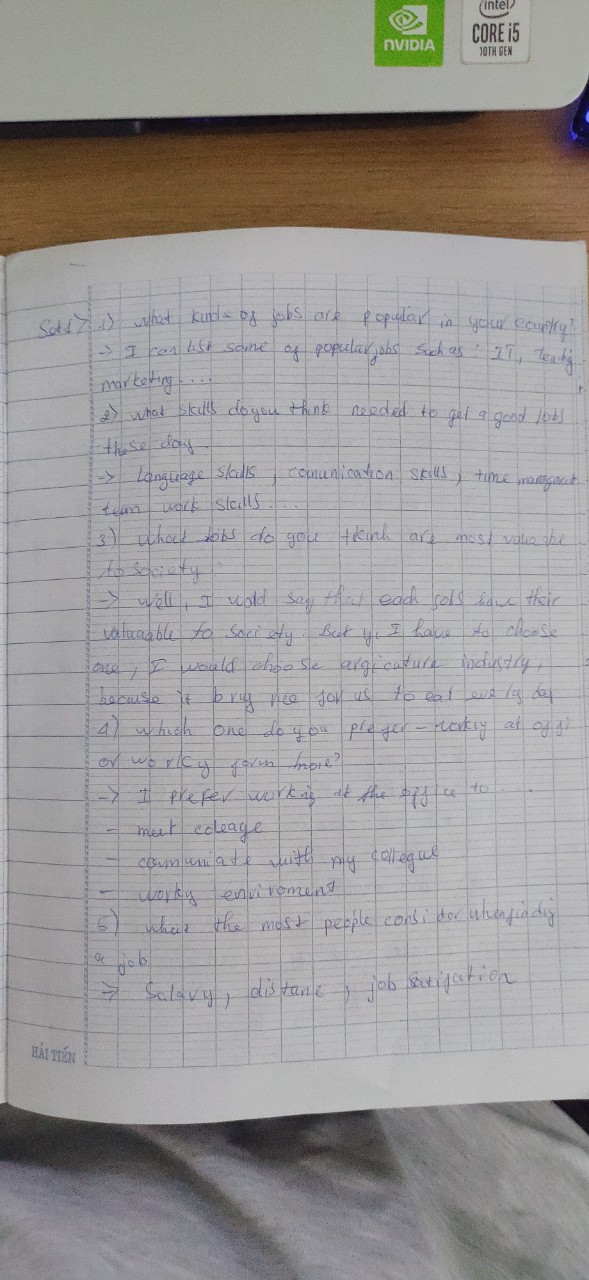 intel
CORE i5
10TH GEN
NVIDIA
1) What kinds of jobs are popular in your country?
-> I can list some of popular jobs such as: IT, teachg
marketing....
2) what skills do you think needed to get a good jobs
these day.
-> language skills, comunication skills, time
team work skills....
3) what Jobs do you think are most
to society
-> Well, I wold say that each jobs have their
valuaable to society. But I have to choose
one, I would choose argicuture industry,
because it bring rice for us to eat every day
4) which one do you prefer - workig at
or workig form
-> I prefer working at the office to ....
- meet coleage
- comuniate with my collegue
- workg enviroment
5) what the most people consider when findig
a job
-> Salary, distance, job
HẢI TIẾN